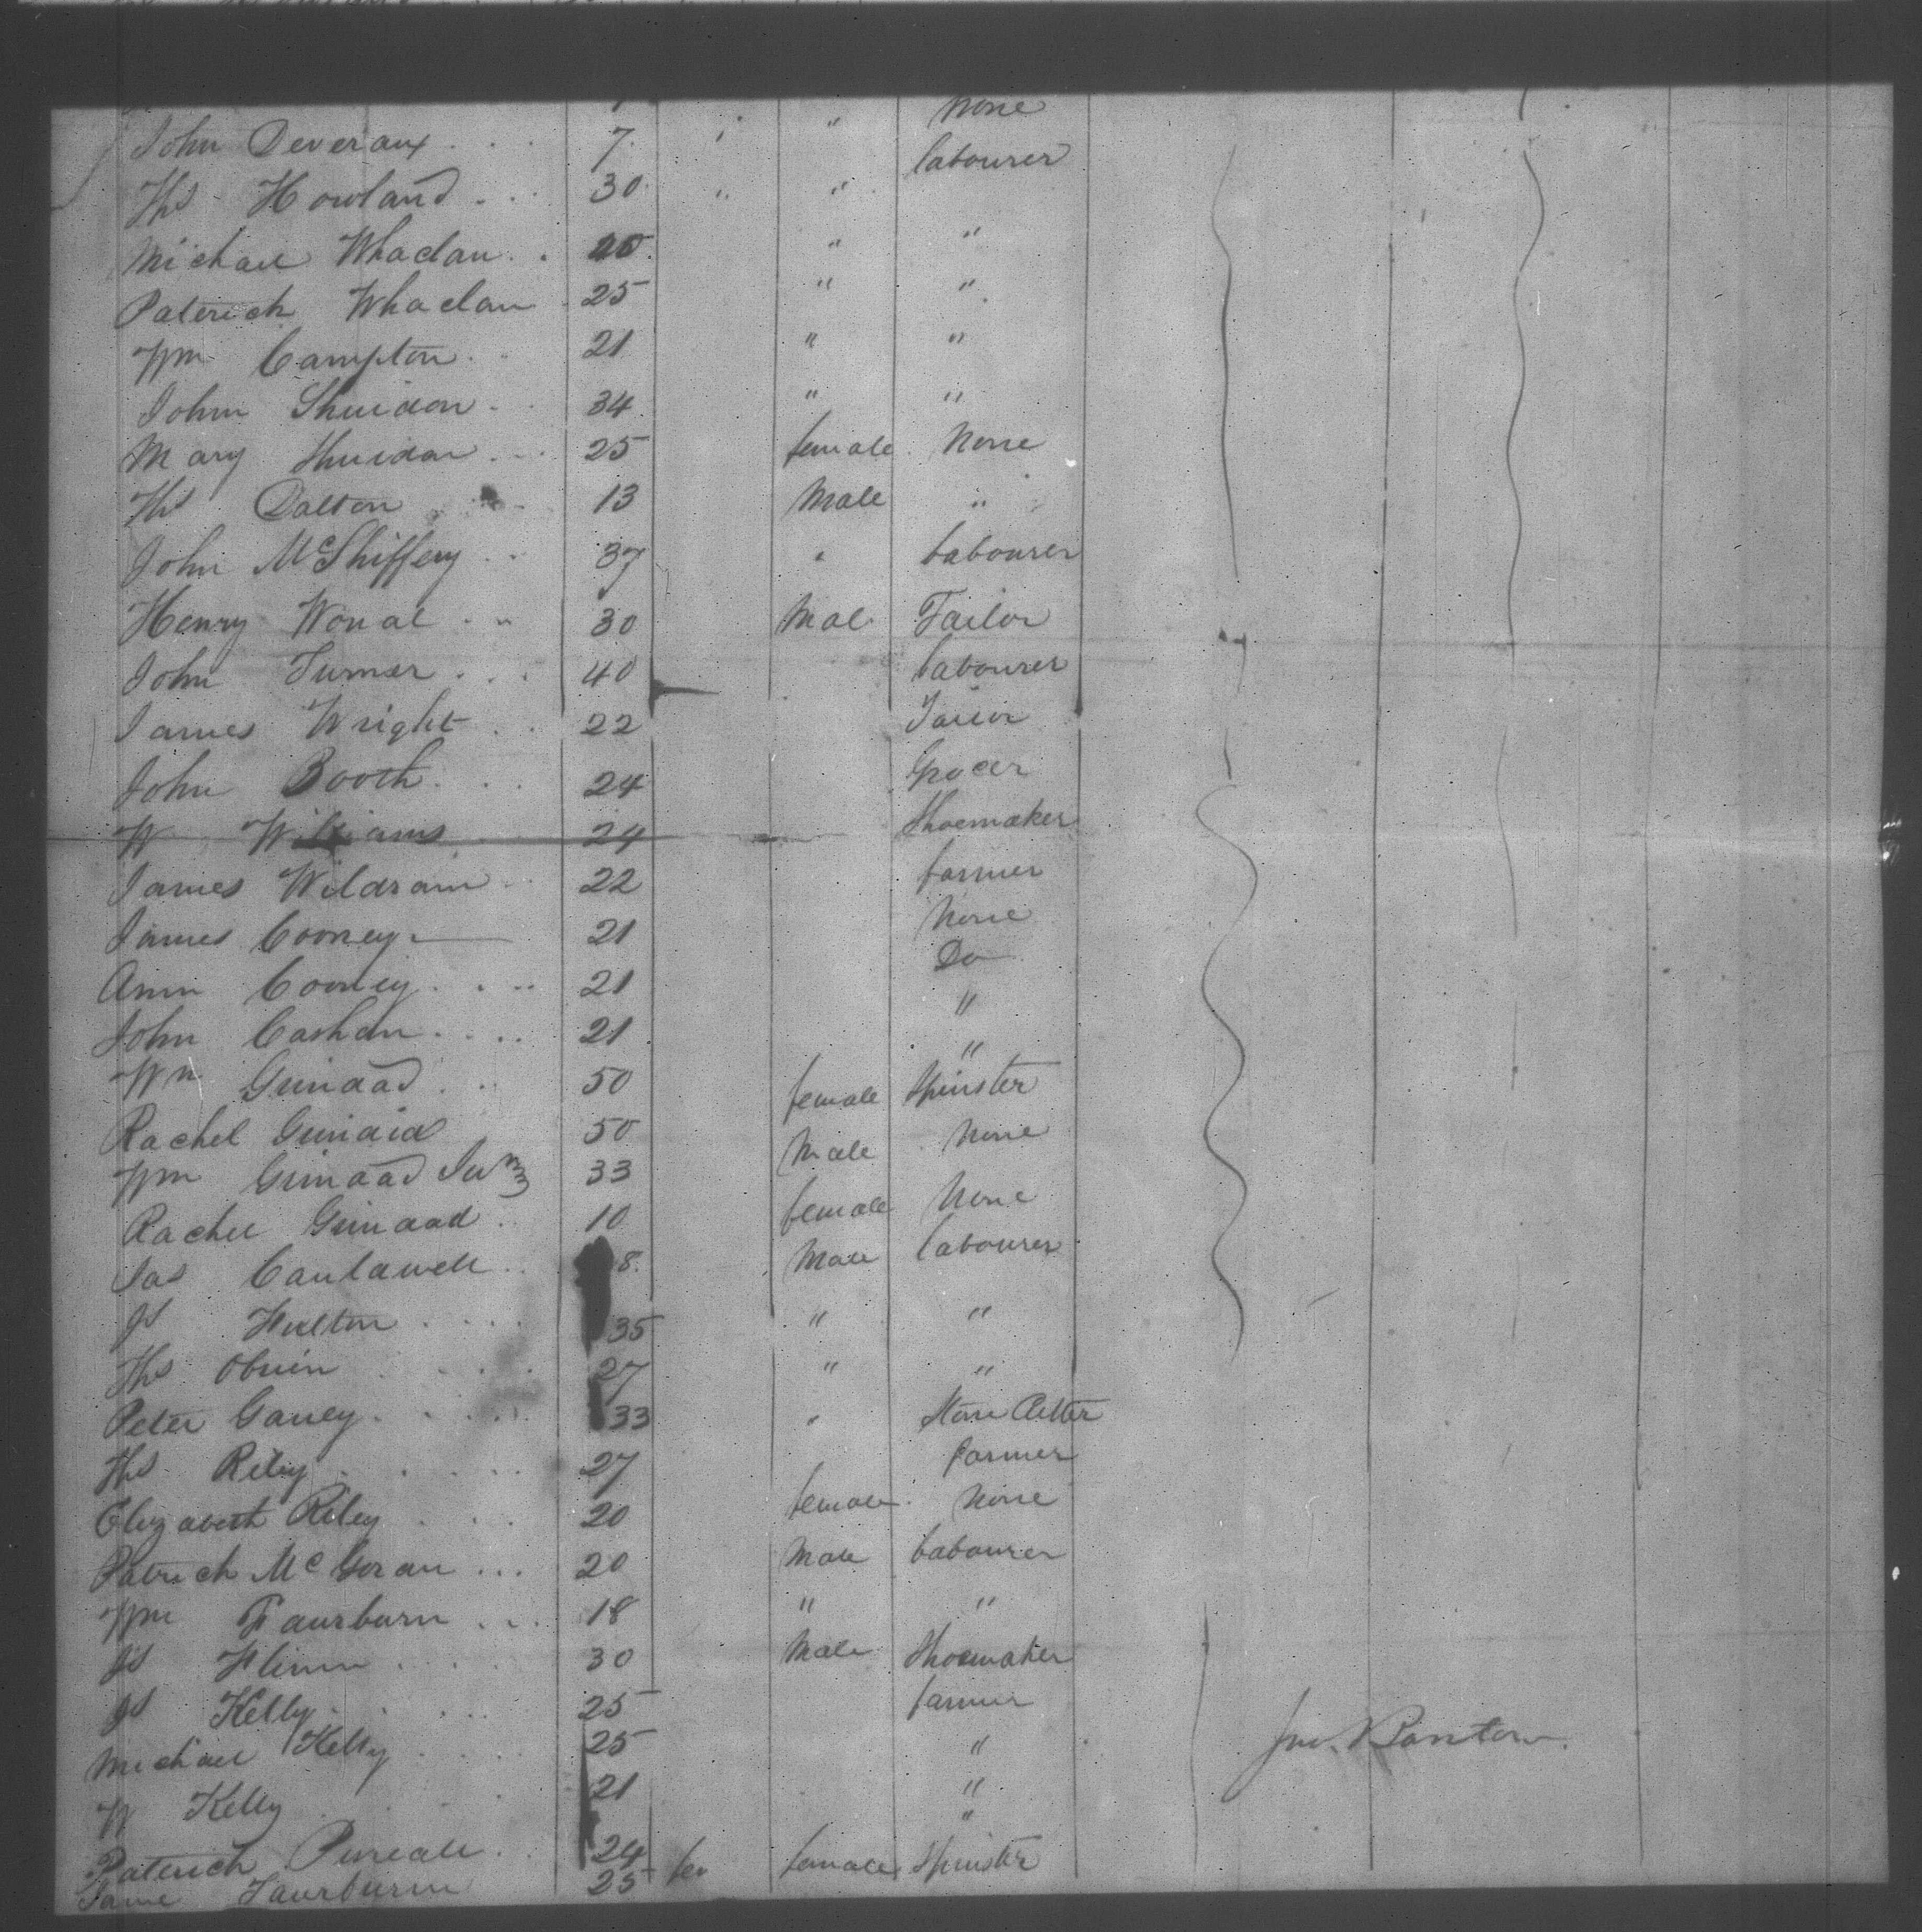 None
John Deveraux . . . 7 " "
Ths Howland . . . 30 " " labourer
Michael Whaelan . . " "
Paterick Whaelan . 25 " "
Wm Campton . . 21 " "
John Shuidan . . 34 " "
Mary Shuidan . . . 25 female None
Ths Dalton 13 Male "
John McShiffery . . 37 " Labourer
Henry . . 30 Mal Tailor
John Turner . . . 40 Labourer
James Wright . . 22 Tailor
John Booth . . . 24 Grocer
W Williams 24 Shoemaker
James Wildram . . 22 farmer
James Cooney 21 None
Ann Cooney . . . . 21 Do
John Cashan . . . . 21 "
Wm Grinaad . . . 50 "
Rachel Grinaid 50 female Spinster
Wm Grinaad Jun 33 Male None
Rachel Grinaad . 10 female None
Jas . . 8 Male labourer
Js Hulton . . . . 35 " "
Ths Obrien . . . . 27 " "
Peter Garrey . . . . 33 " Stone Cutter
Ths Riley . . . . . 27 farmer
Elizabeth Riley . . . 20 female None
Patrick McGoran . . . 20 Male Labourer
Wm Faurburn . . . 18 " "
Js Flinn . . . . 30 Male Shoemaker
Js Kelly . . . . 25 farmer
Michael Kelly . . . . 25 "
W Kelly . . . . 21 "
Paterick . 24
Jane Faurburn 25 fer female Spinster
Jno. Bantow